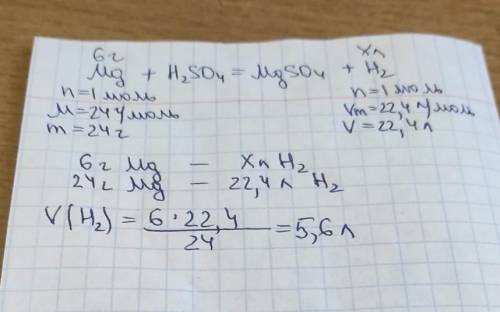 6г Xл
Mg + H₂SO₄ = MgSO₄ + H₂
n=1моль n=1моль
M=24г/моль Vm=22,4л/моль
m=24г V=22,4л
6г Mg — Xл H₂
24г Mg — 22,4л H₂
V(H₂) = 6·22,4/24 = 5,6л